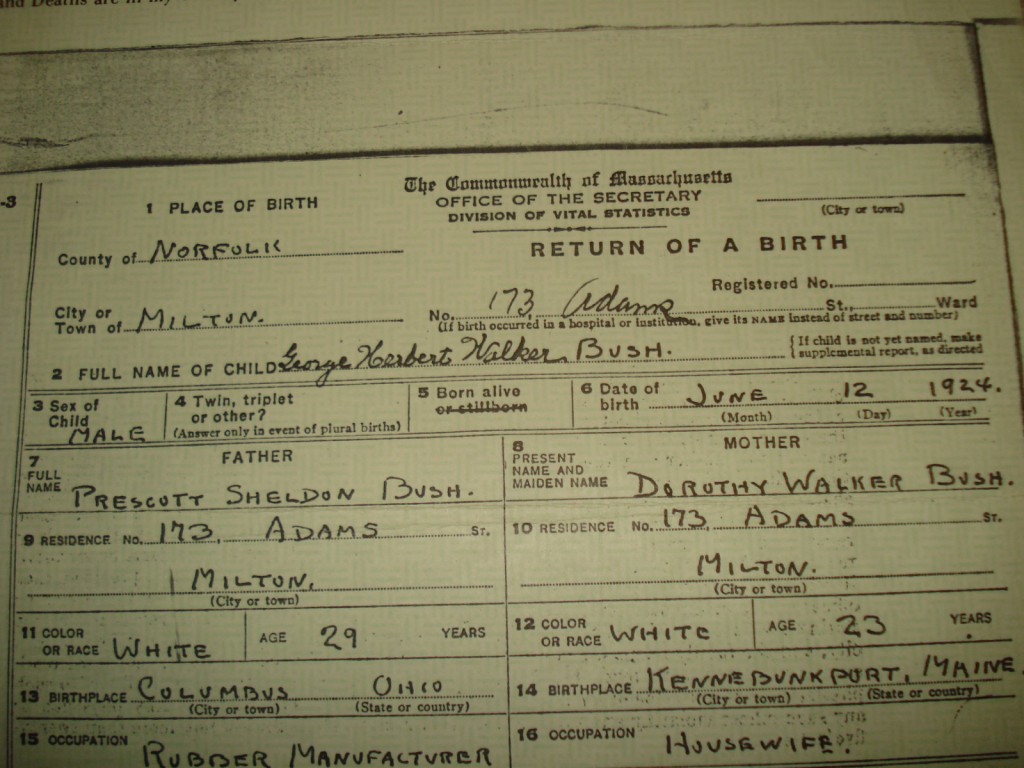 and Deaths are in my
-3
The Commonwealth of Massachusetts
OFFICE OF THE SECRETARY
DIVISION OF VITAL STATISTICS
(City or town)
1 PLACE OF BIRTH
RETURN OF A BIRTH
County of NORFOLK
Registered No.
City or Town of MILTON.
No. 173, Adams St., Ward
(If birth occurred in a hospital or institution, give its NAME instead of street and number)
2 FULL NAME OF CHILD George Herbert Walker BUSH.
{ If child is not yet named, make supplemental report, as directed
3 Sex of Child MALE
4 Twin, triplet or other?
(Answer only in event of plural births)
5 Born alive or stillborn
6 Date of birth JUNE 12 1924.
(Month) (Day) (Year)
FATHER
7 FULL NAME PRESCOTT SHELDON BUSH.
MOTHER
8 PRESENT NAME AND MAIDEN NAME DOROTHY WALKER BUSH.
9 RESIDENCE No. 173, ADAMS ST.
10 RESIDENCE No. 173, ADAMS ST.
MILTON.
(City or town)
MILTON.
(City or town)
11 COLOR OR RACE WHITE AGE 29 YEARS
12 COLOR OR RACE WHITE AGE 23 YEARS
13 BIRTHPLACE COLUMBUS OHIO
(City or town) (State or country)
14 BIRTHPLACE KENNEBUNKPORT, MAINE
(City or town) (State or country)
15 OCCUPATION RUBBER MANUFACTURER
16 OCCUPATION HOUSEWIFE.